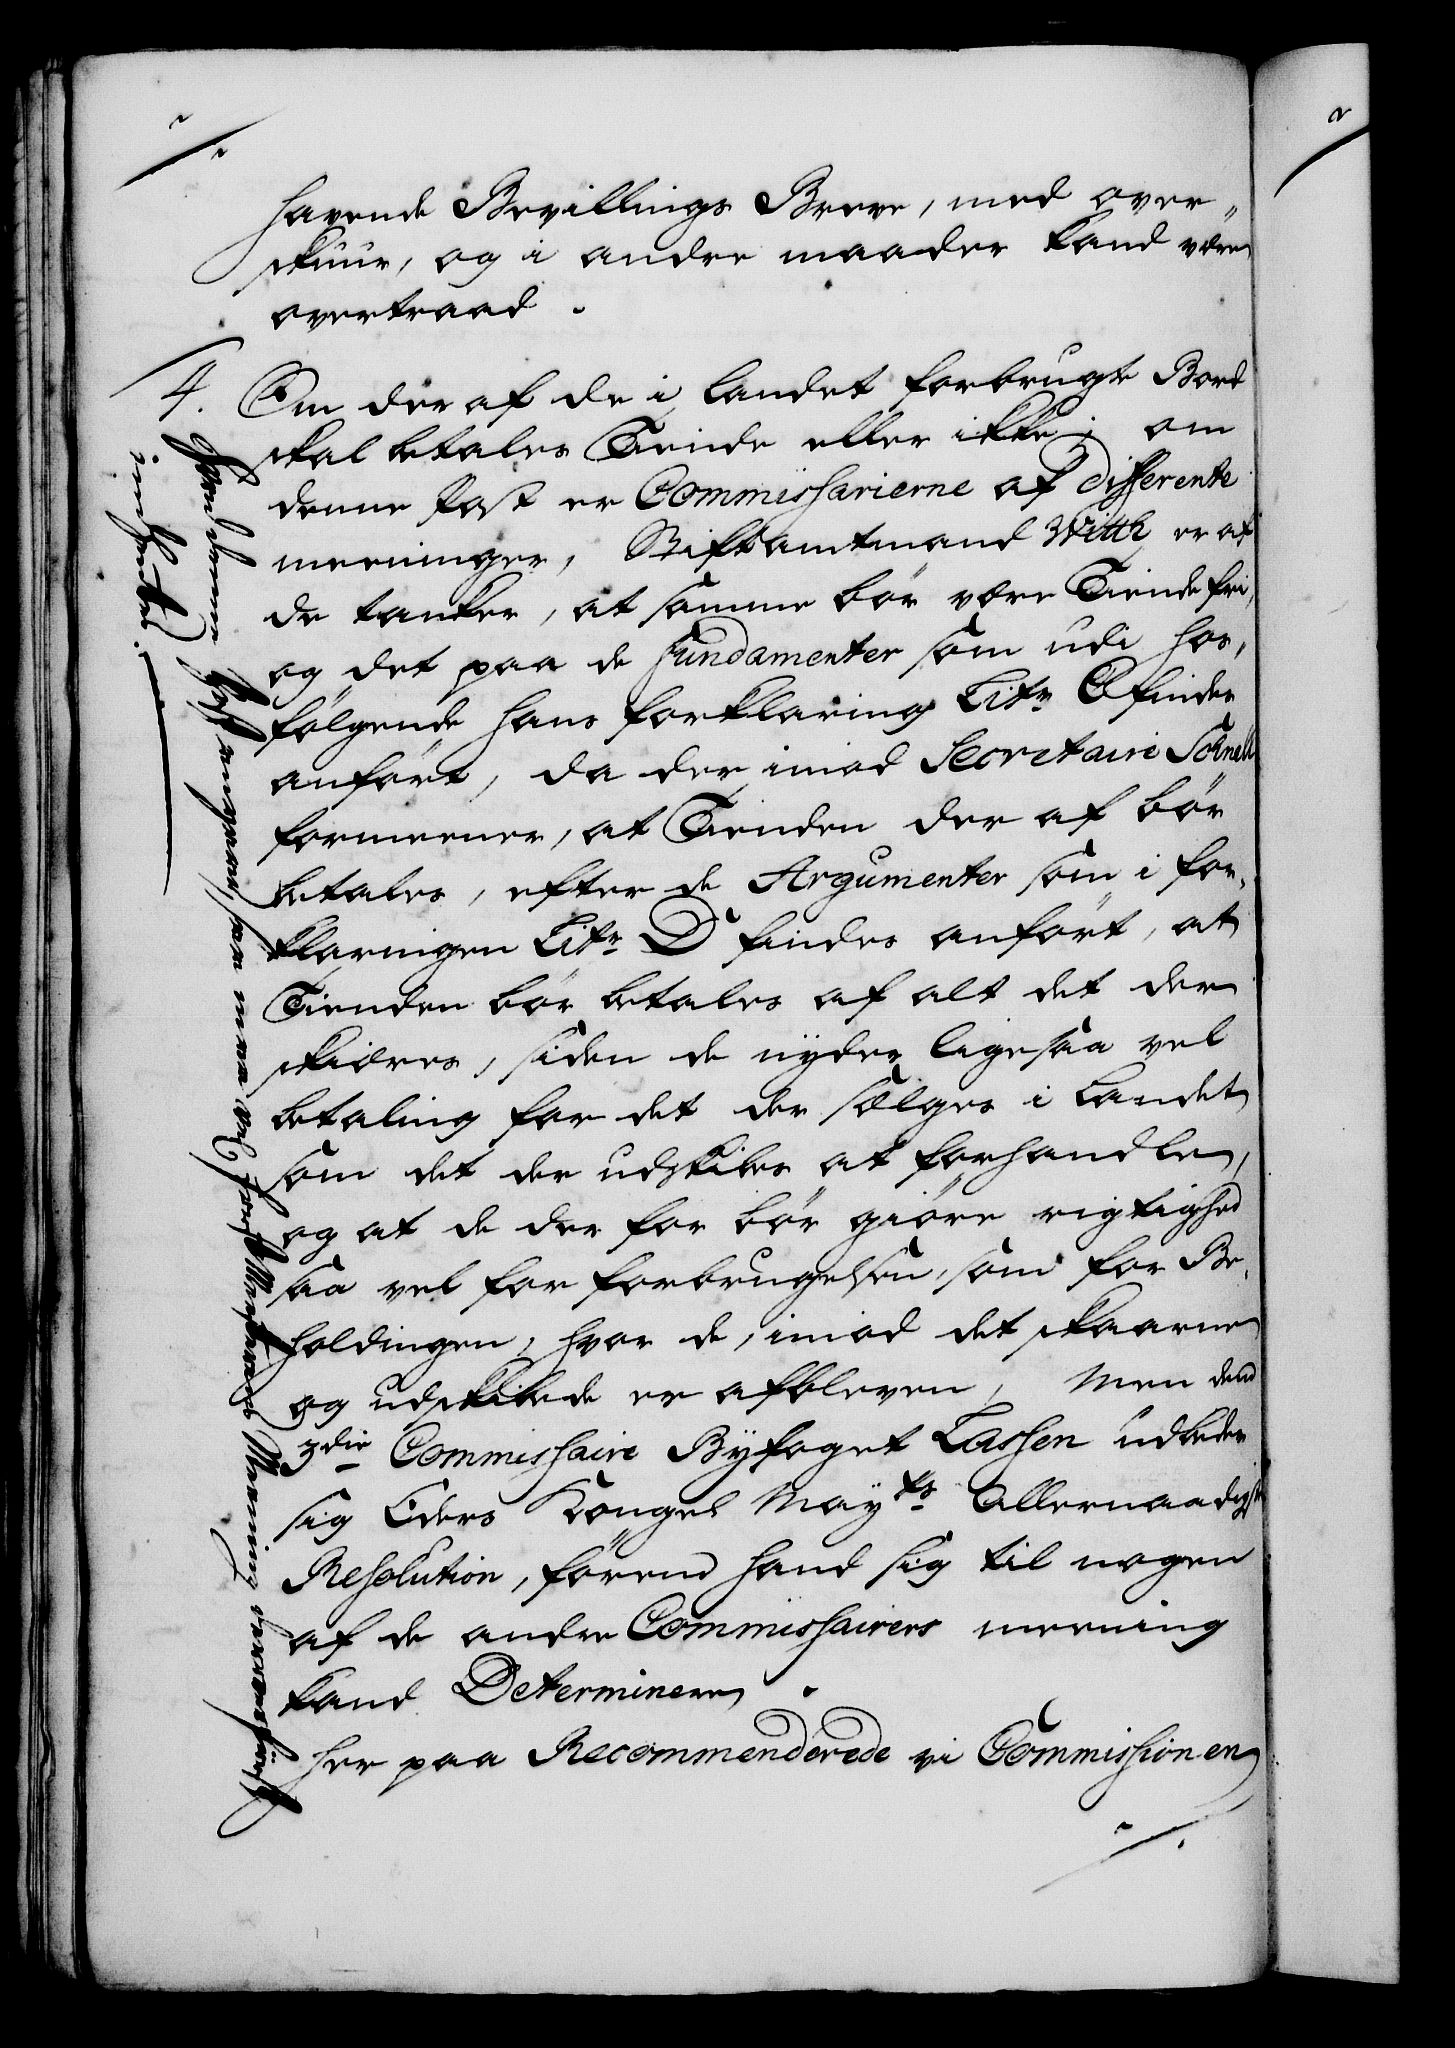 havende Bevillings Breve, med over„
skuur, og i andre maader kand være
overtraad.
4. Om der af de i landet forbrugte Bord
skal betales Tiende eller ikke; om
denne Post er Commissarierne af differente
meeninger, Stiftamtmand Witth er af
de tanker, at samme bør være Tiende fri,
og det paa de fundamenter som udi hos,
følgende hans forklaring Litr C findes
anført, da der imod Secretaire Schnell
formeener, at Tienden der af bør
betales, efter de Argumenter som i for,
klaringen Litr D findes anført, at
Tienden bør betales af alt det der
skiæres, siden de nyder ligesaa vel
betaling for det der sælges i landet
som det der udskibes at forhandle,
og at de der for bør giøre rigtighed
saa vel for forbrugelsen, som for Be,
holdingen, hvor de, imod det skaarne
og udskibede er afbleven, Men dend
3die Commissaire Byfoget Lassen udbeder
sig Eders Kongel May:ts Allernaadigste
Resolution, førend hand sig til nogen
af de andre Commissairers meening
kand Determinere.
Her paa Recommenderede vi Commissionen
./.
denne Post angaaende, som maa vel Meening